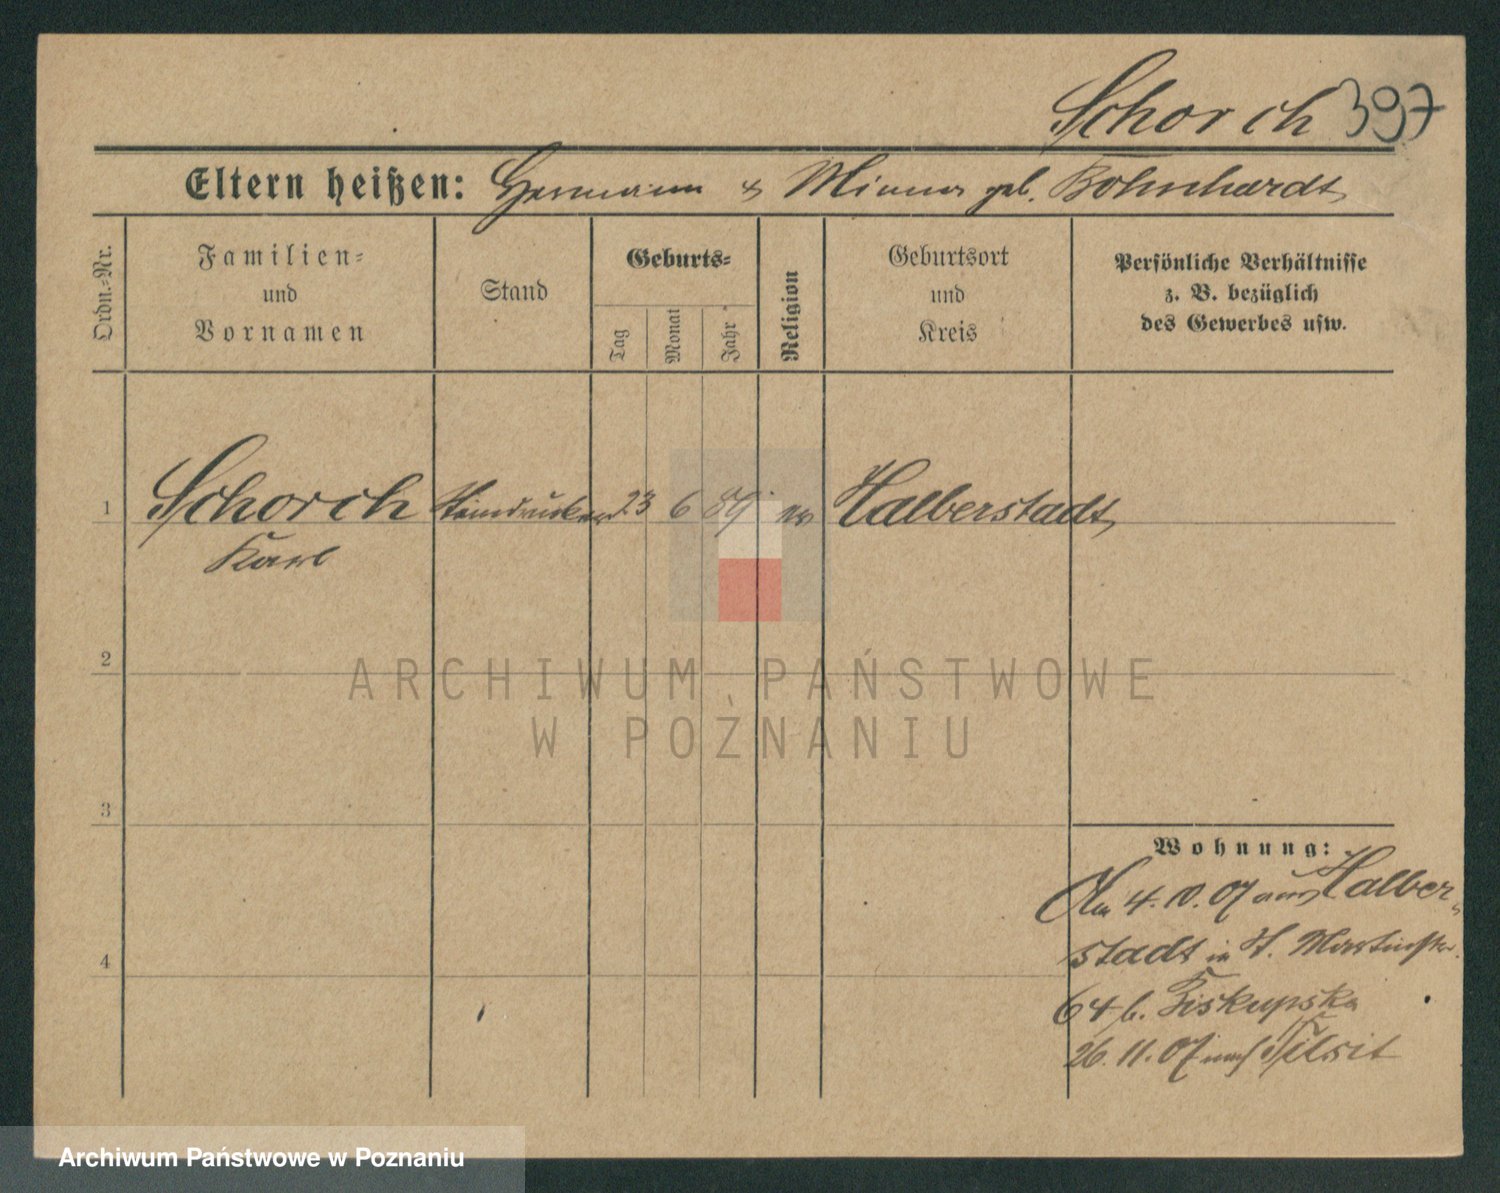 Schorch 397
Eltern heißen: Hermann & Minna geb. Bohnhardt
Ordn.-Nr.
Familien-
und
Vornamen
Stand
Geburts-
Tag
Monat
Jahr
Religion
Geburtsort
und
Kreis
Persönliche Verhältnisse
z. B. bezüglich
des Gewerbes usw.
1 Schorch Steindrucker 23 6 89 ev Halberstadt
Karl
2
3
4
Wohnung:
Am 4.10.07 aus Halber-
stadt in St. Martinstr.
64 b. Biskupska
26.11.07 nach Tilsit
ARCHIWUM PAŃSTWOWE
W POZNANIU
Archiwum Państwowe w Poznaniu